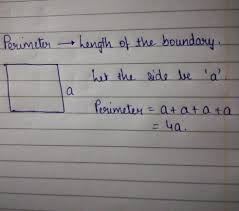 Perimeter → Length of the boundary.
Let the side be 'a'.
a
Perimeter = a + a + a + a
= 4a.